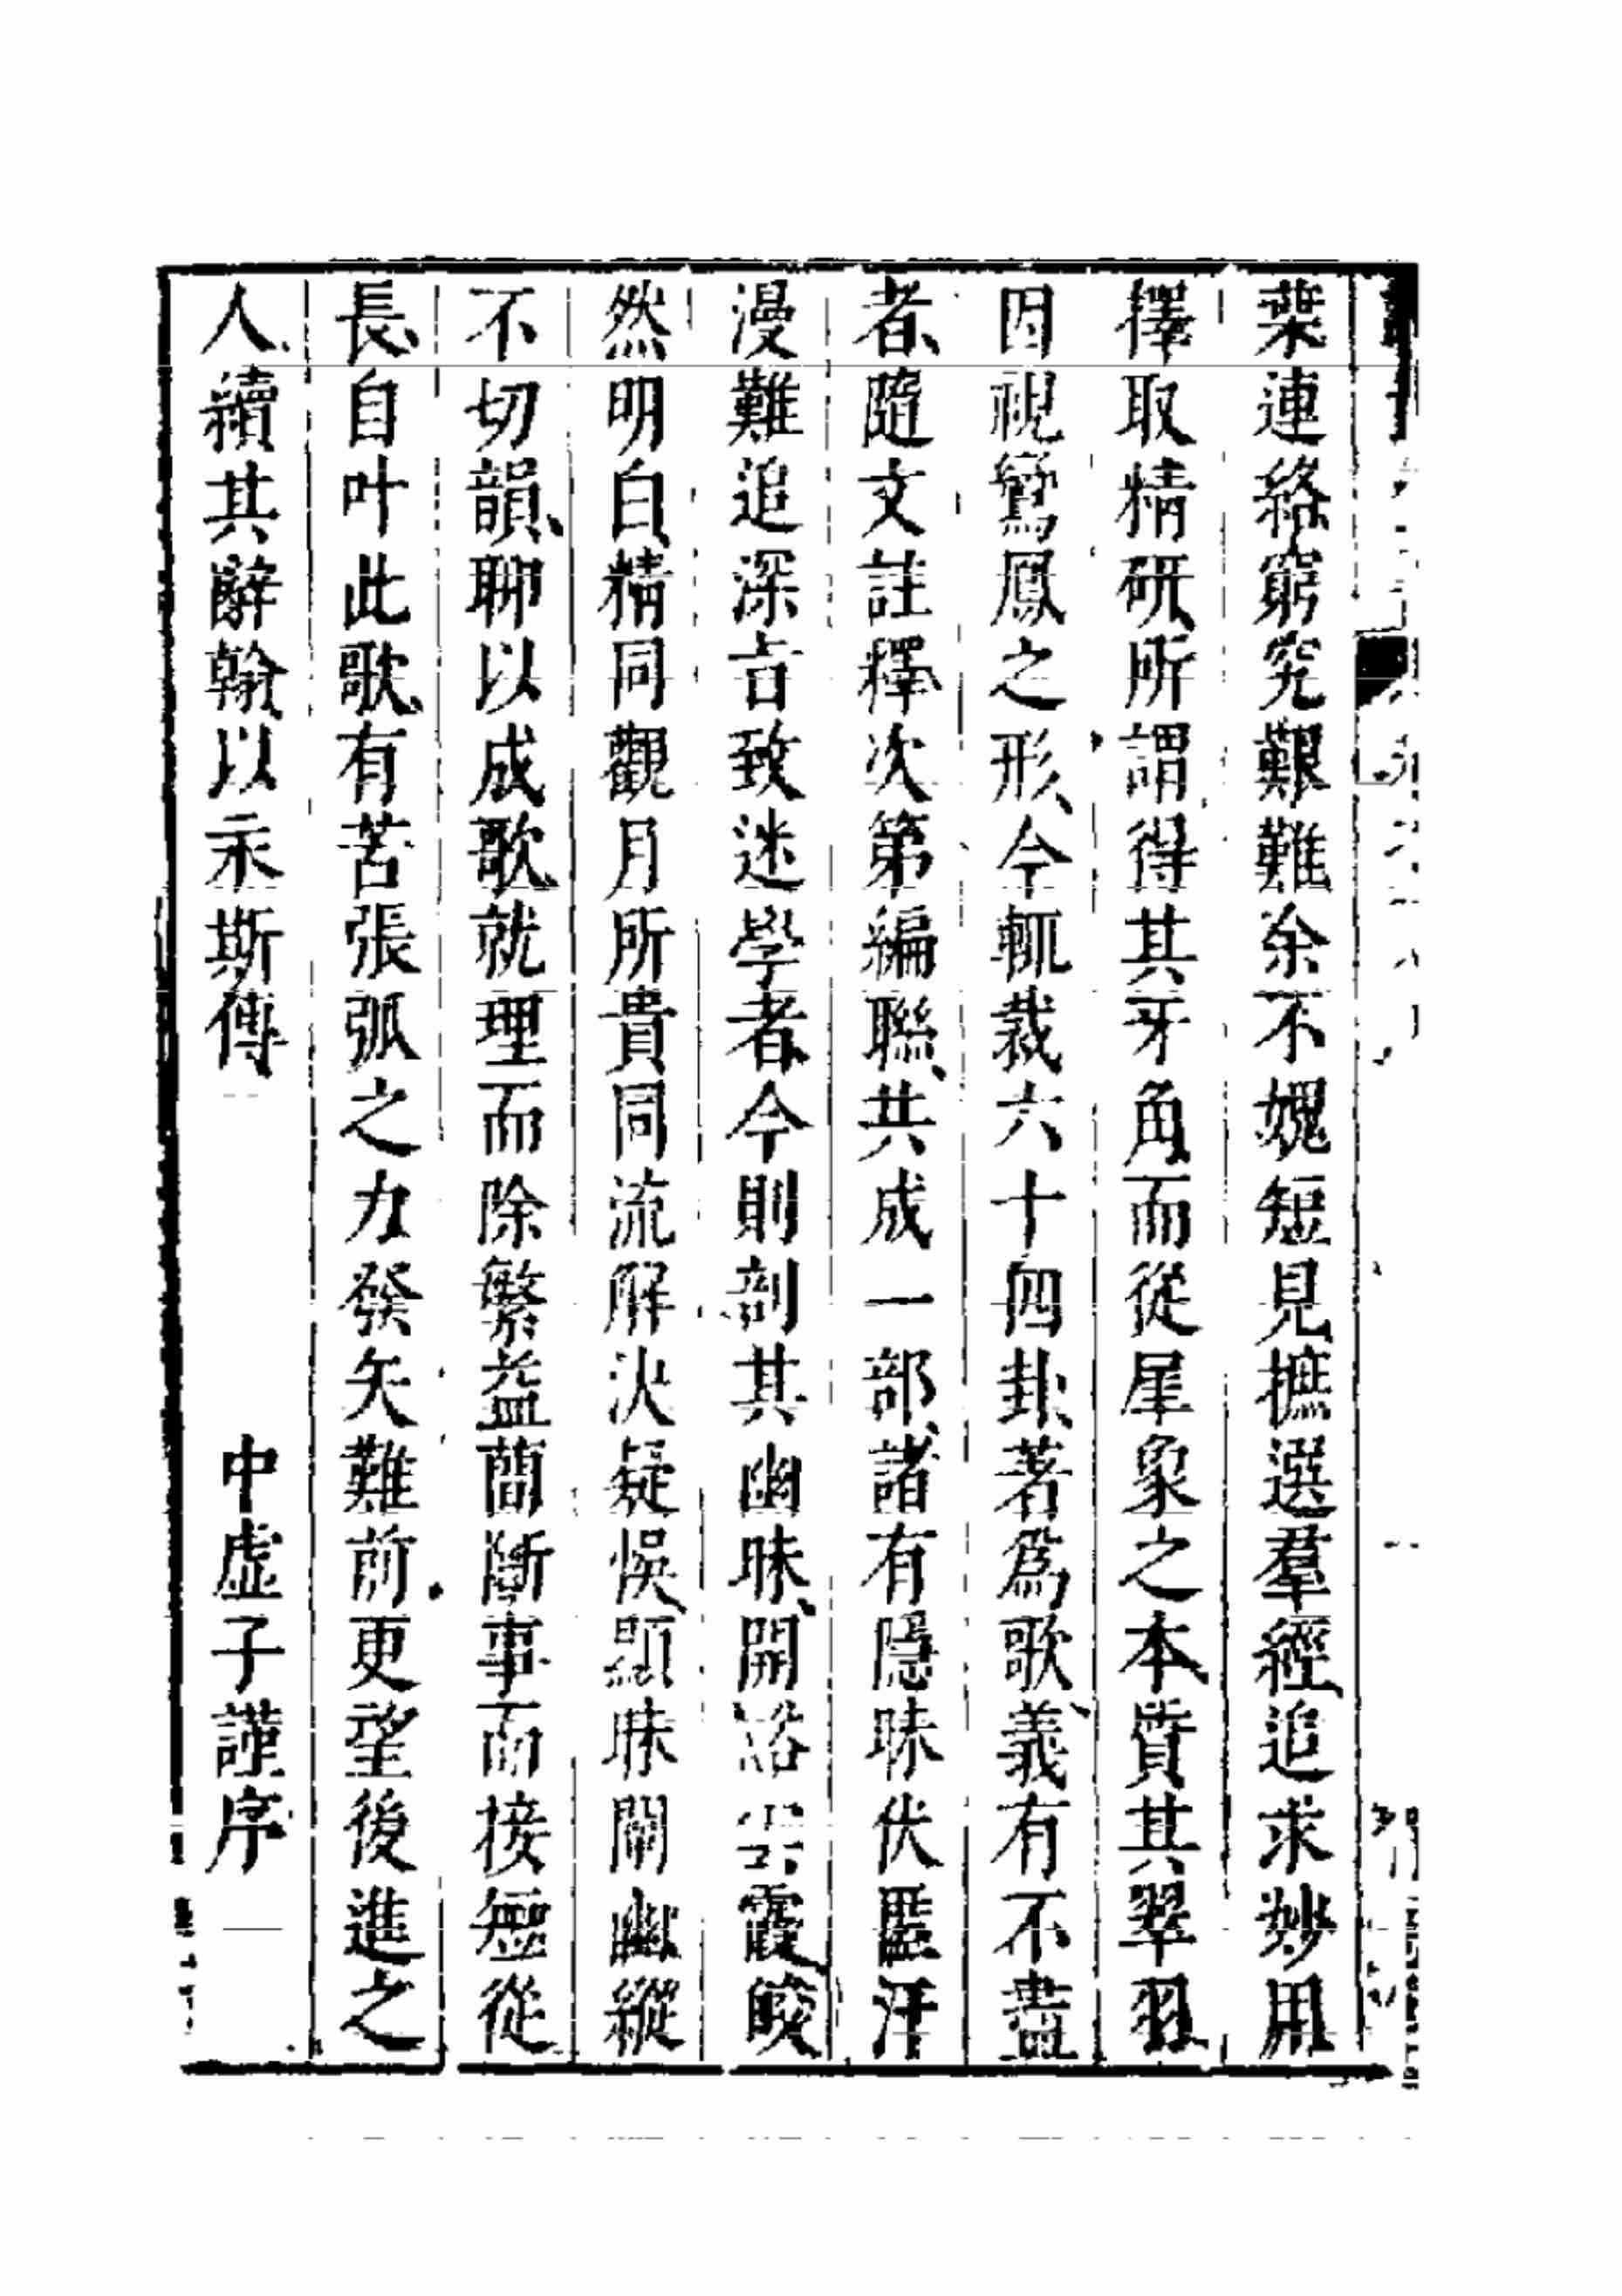 葉連絡窮究艱難余不媿短見摭選羣經追求妙用
擇取精研所謂得其牙角而從犀象之本質其翠羽
因視鸞鳳之形今輒裁六十四卦著爲歌義有不盡
者隨文註釋次第編聯共成一部諸有隱昧伏匿汗
漫難追深言致迷學者今則剖其幽昧開豁雲霞皎
然明白精同觀月所貴同流解決疑悞顯昧闡幽縱
不切韻聊以成歌就理而除繁益簡斷事而接短從
長自叶此歌有苦張弧之力發矢難前更望後進之
人續其辭翰以永斯傳
中虛子謹序